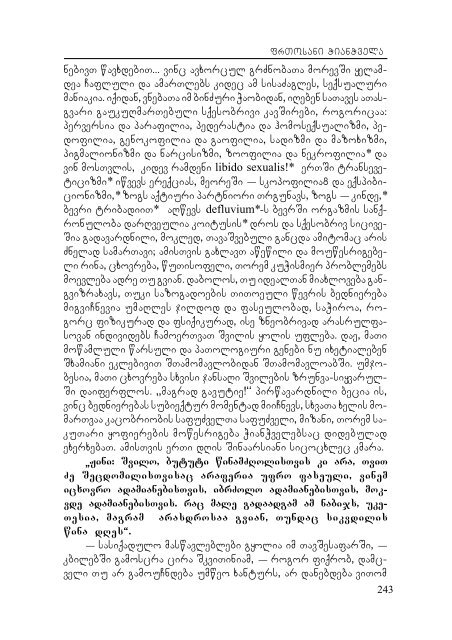 ფრთოსანი ჭიანჭველა
ნებივთ წავხდებით... ვინც ავხორცულ გრძნობათა მორევში ყელამ-
დეა ჩაფლული და ამართლებს კიდეც ამ სისაძაგლეს, სექსუალური
მანიაკია. იქიდან, ვნებათა იმ ბინძური ჭაობიდან, იღებენ სათავეს ათას-
გვარი გაუკუღმართებული სქესობრივი კავშირები, როგორიცაა:
პერვერსია და პარაფილია, პედერასტია და ჰომოსექსუალიზმი, პე-
დოფილია, გენოკოფილია და გაოფილია, სადიზმი და მაზოხიზმი,
პიგმალიონიზმი და ნარცისიზმი, ზოოფილია და ნეკროფილია* და
ვინ მოსთვლის, კიდევ რამდენი libido sexualis!* ერთში ტრანსვეს-
ტიციზმი* იწვევს ერექციას, მეორეში — სკოპოფილიაზ და ექსჰიბი-
ციონიზმი,* ზოგს აქტიური პარტნიორი თრგუნავს, ზოგს — კინდე,*
ბევრი ტრიბადით* აღწევს defluvium*-ს ბევრში ორგაზმის სანქ-
რონულობა დარღვეულია კოიტუსის* დროს და სქესობრივ სიცივე-
შია გადავარდნილი, მოკლედ, თავაშვებული განცდა ამიტომაც არის
ძნელად სამართავი; ამისთვის გახლავთ აწეწილი და მოუწესრიგებე-
ლი რინა, ცხოვრება, წუთისოფელი, თორემ კუჭისმიერ პრობლემებს
მოევლება ადრე თუ გვიან. დაბოლოს, თუ იდეალთან მიახლოვება გან-
გვიზრახავს, თუკი საზოგადოების თითოეული წევრის ბედნიერება
მიგვიჩნევია უმაღლეს ჯილდოდ და ფასეულობად, საჭიროა, რო-
გორც ფიზიკურად და ფსიქიკურად, ისე ზნეობრივად არასრულფა-
სოვან ინდივიდებს ჩამოერთვათ შვილის ყოლის უფლება. დაე, მათი
მოწამლული წარსული და პათოლოგიური გენები ნუ იხეტიალებენ
შხამიანი ეკლებივით შთამომავლობიდან შთამომავლობაში. უმჯო-
ბესია, მათი ცხოვრება სხვისი ჯანსაღი შვილების ზრუნვა-სიყვარულ-
ში დაიფერფლოს. „მაგრად გავუტიე!“ პირწავარდნილი ბეცია ის,
ვინც ბედნიერებას სუბიექტურ მომენტად მიიჩნევს, სხვათა ხელის მო-
მართვაა კაცობრიობის საფუძველთა საფუძველი, მიზანი, თორემ სა-
კუთარი ყოფიერების მოწესრიგება ჭიანჭველებსაც დიდებულად
ეხერხებათ. ამისთვის ერთი დღის შინაარსიანი სიცოცხლეც კმარა.
„ჟინი: შვილო, ბუტუტი წინამძღოლისთვის კი არა, თვით
ძე შეცდომილისთვისაც არაფერია უფრო ფასეული, ვინემ
იცხოვრო ადამიანებისთვის, იბრძოლო ადამიანებისთვის, მოკ-
ვდე ადამიანებისთვის. რაც მალე გადაადგამ ამ ნაბიჯს, უკე-
თესია, მაგრამ არასდროსაა გვიან, თუნდაც სიკვდილის
წინა დღეს“.
— სასიქადულო მასწავლებლები გყოლია იმ თავშესაფარში, —
კბილებში გამოსცრა ცირა შკვითინიამ, — როგორ ფიქრობ, დამც-
ველი თუ არ გამოუჩნდება უმწეო ხანტურს, არ დანებდება ვითომ
243